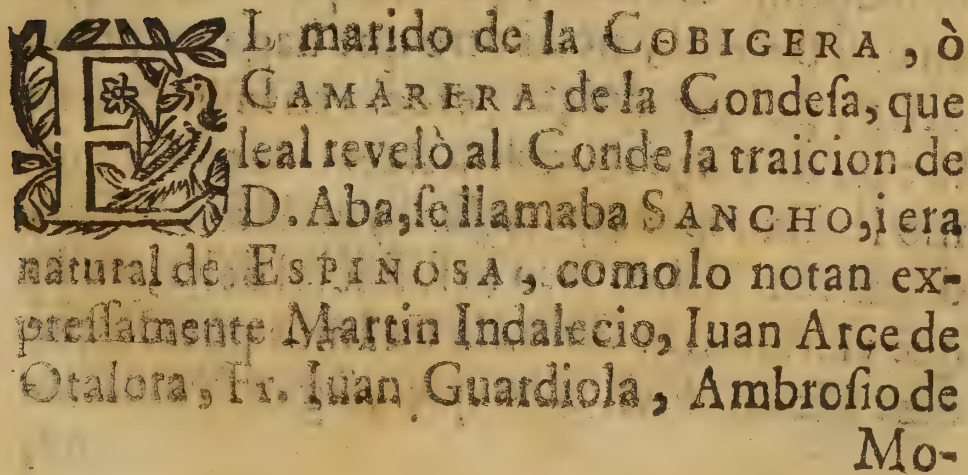 EL marido de la COBIGERA, ò
CAMARERA de la Condeſa, que
leal revelò al Conde la traicion de
D. Aba, ſe llamaba SANCHO, i era
natural de ESPINOSA, como lo notan ex-
preſſamente Martin Indalecio, Iuan Arçe de
Otalora, Fr. Iuan Guardiola, Ambroſio de
Mo-